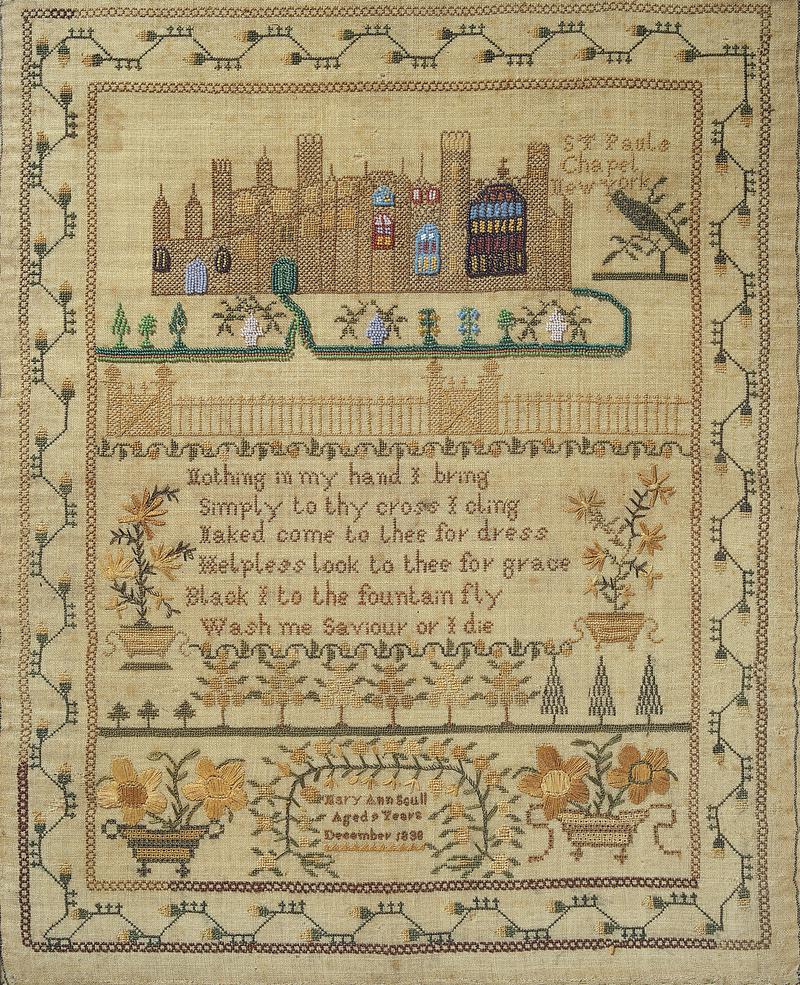 ST Pauls
Chapel
New york
Nothing in my hand I bring
Simply to thy cross I cling
Naked come to thee for dress
Helpless look to thee for grace
Black I to the fountain fly
Wash me Saviour or I die
Mary Ann Scull
Aged 9 Years
December 1838